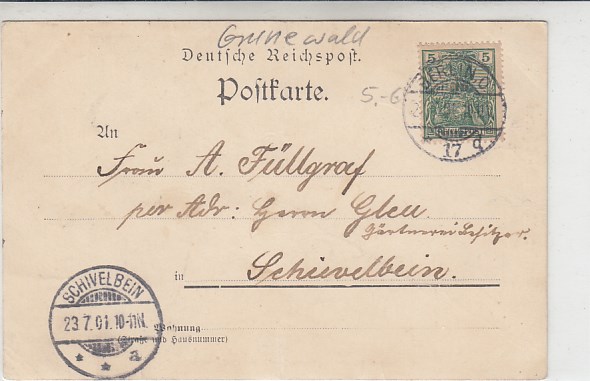 Grunewald
Deutsche Reichspost.
Postkarte.
5,-
5 5
BERLIN
17 q
An
Frau A. Füllgraf
per Adr: Herrn Gleu.
Gärtnerei Besitzer.
in Schievelbein.
SCHIVELBEIN
23.7.01.10-11N.
* * a
Wohnung
(Straße und Hausnummer)